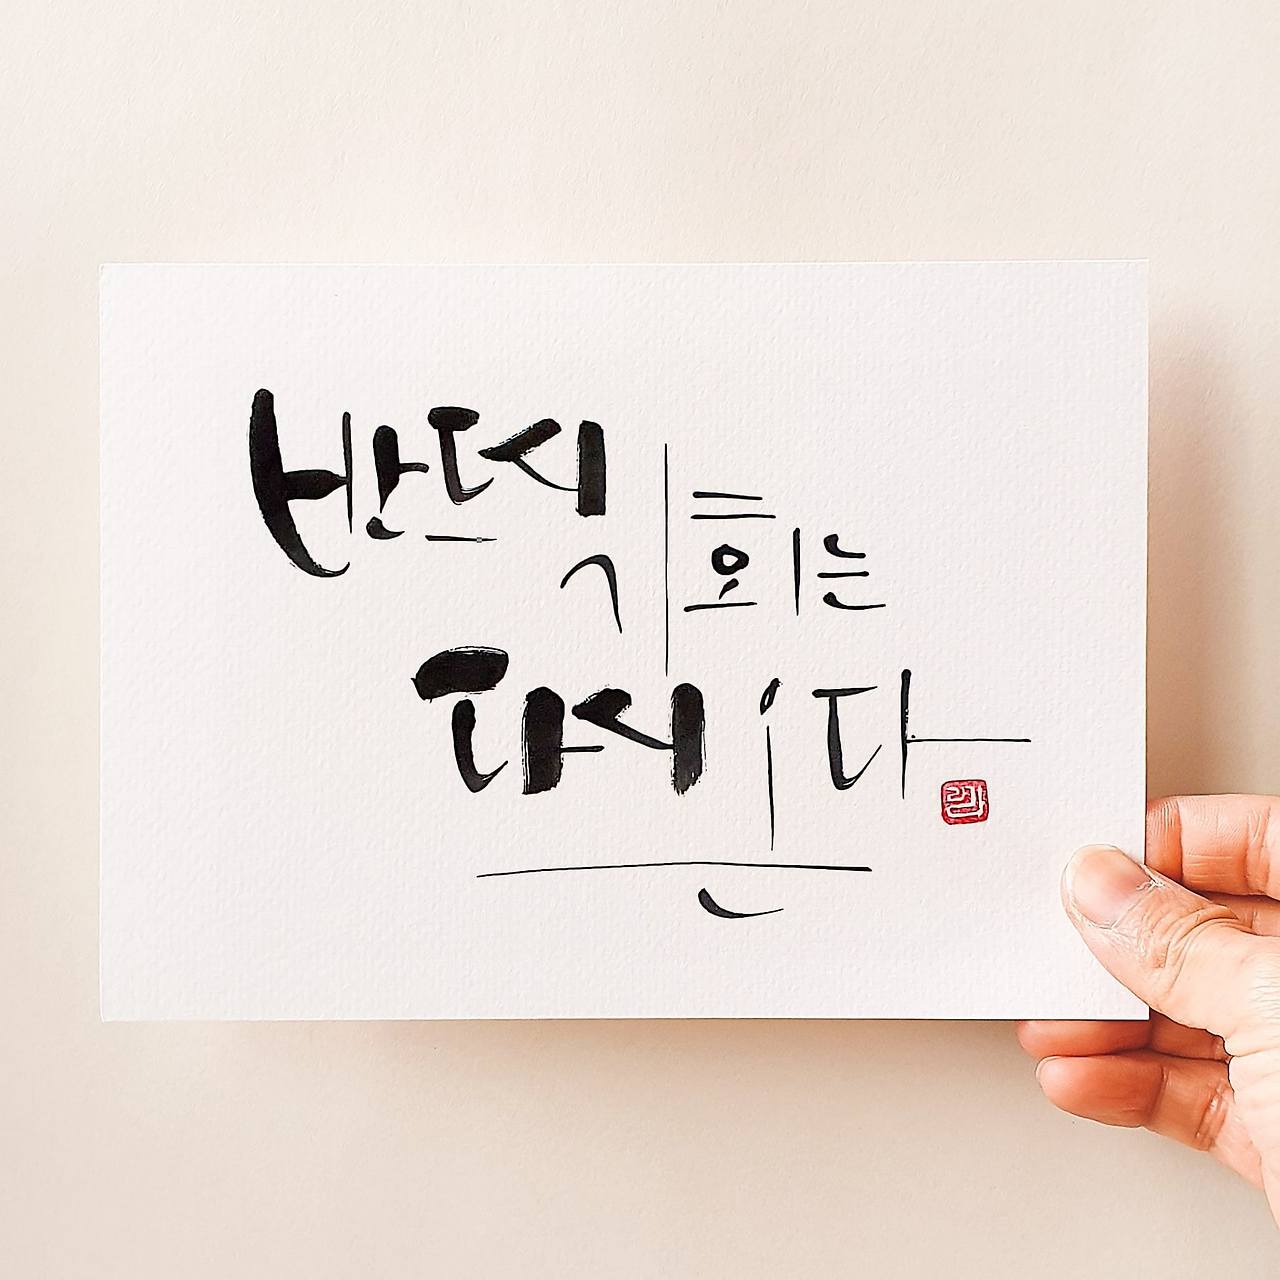 반드시
기회는
다시 온다